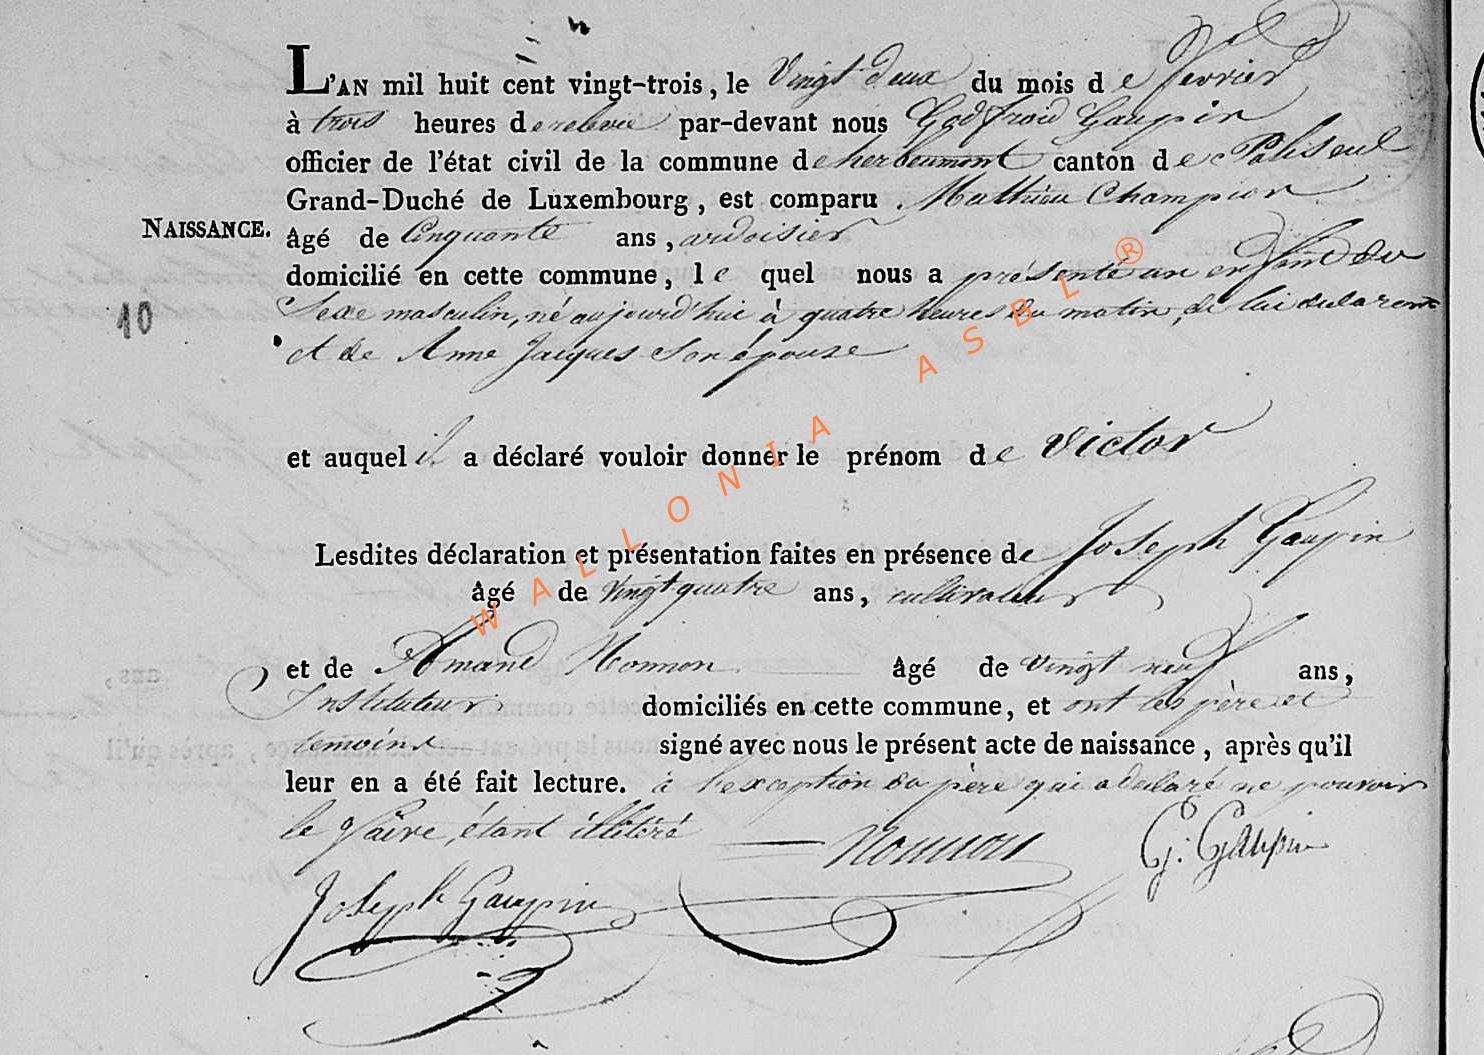 L'AN mil huit cent vingt-trois, le Vingt deux du mois de fevrier
à trois heures de relevée par-devant nous Godfroid Gaupin
officier de l'état civil de la commune de herbeumont canton de Paliseul
Grand-Duché de Luxembourg, est comparu Mathieu Champion
NAISSANCE.
âgé de Cinquante ans, ardoisier
domicilié en cette commune, le quel nous a présenté un enfant du
10
Sexe masculin, né aujourd'hui à quatre heures du matin, de lui
et de Anne Jacques son épouse
et auquel il a déclaré vouloir donner le prénom de Victor
Lesdites déclaration et présentation faites en présence de Joseph Gaupin
âgé de vingt quatre ans, cultivateur
et de Amand Monnon âgé de vingt neuf ans,
Instituteur domiciliés en cette commune, et ont les père et
temoins signé avec nous le présent acte de naissance, après qu'il
leur en a été fait lecture. à l'exception du père qui a déclaré ne pouvoir
le faire, étant illitéré
Monnon G: Gaupin
Joseph Gaupin
WALLONIA ASBL ®